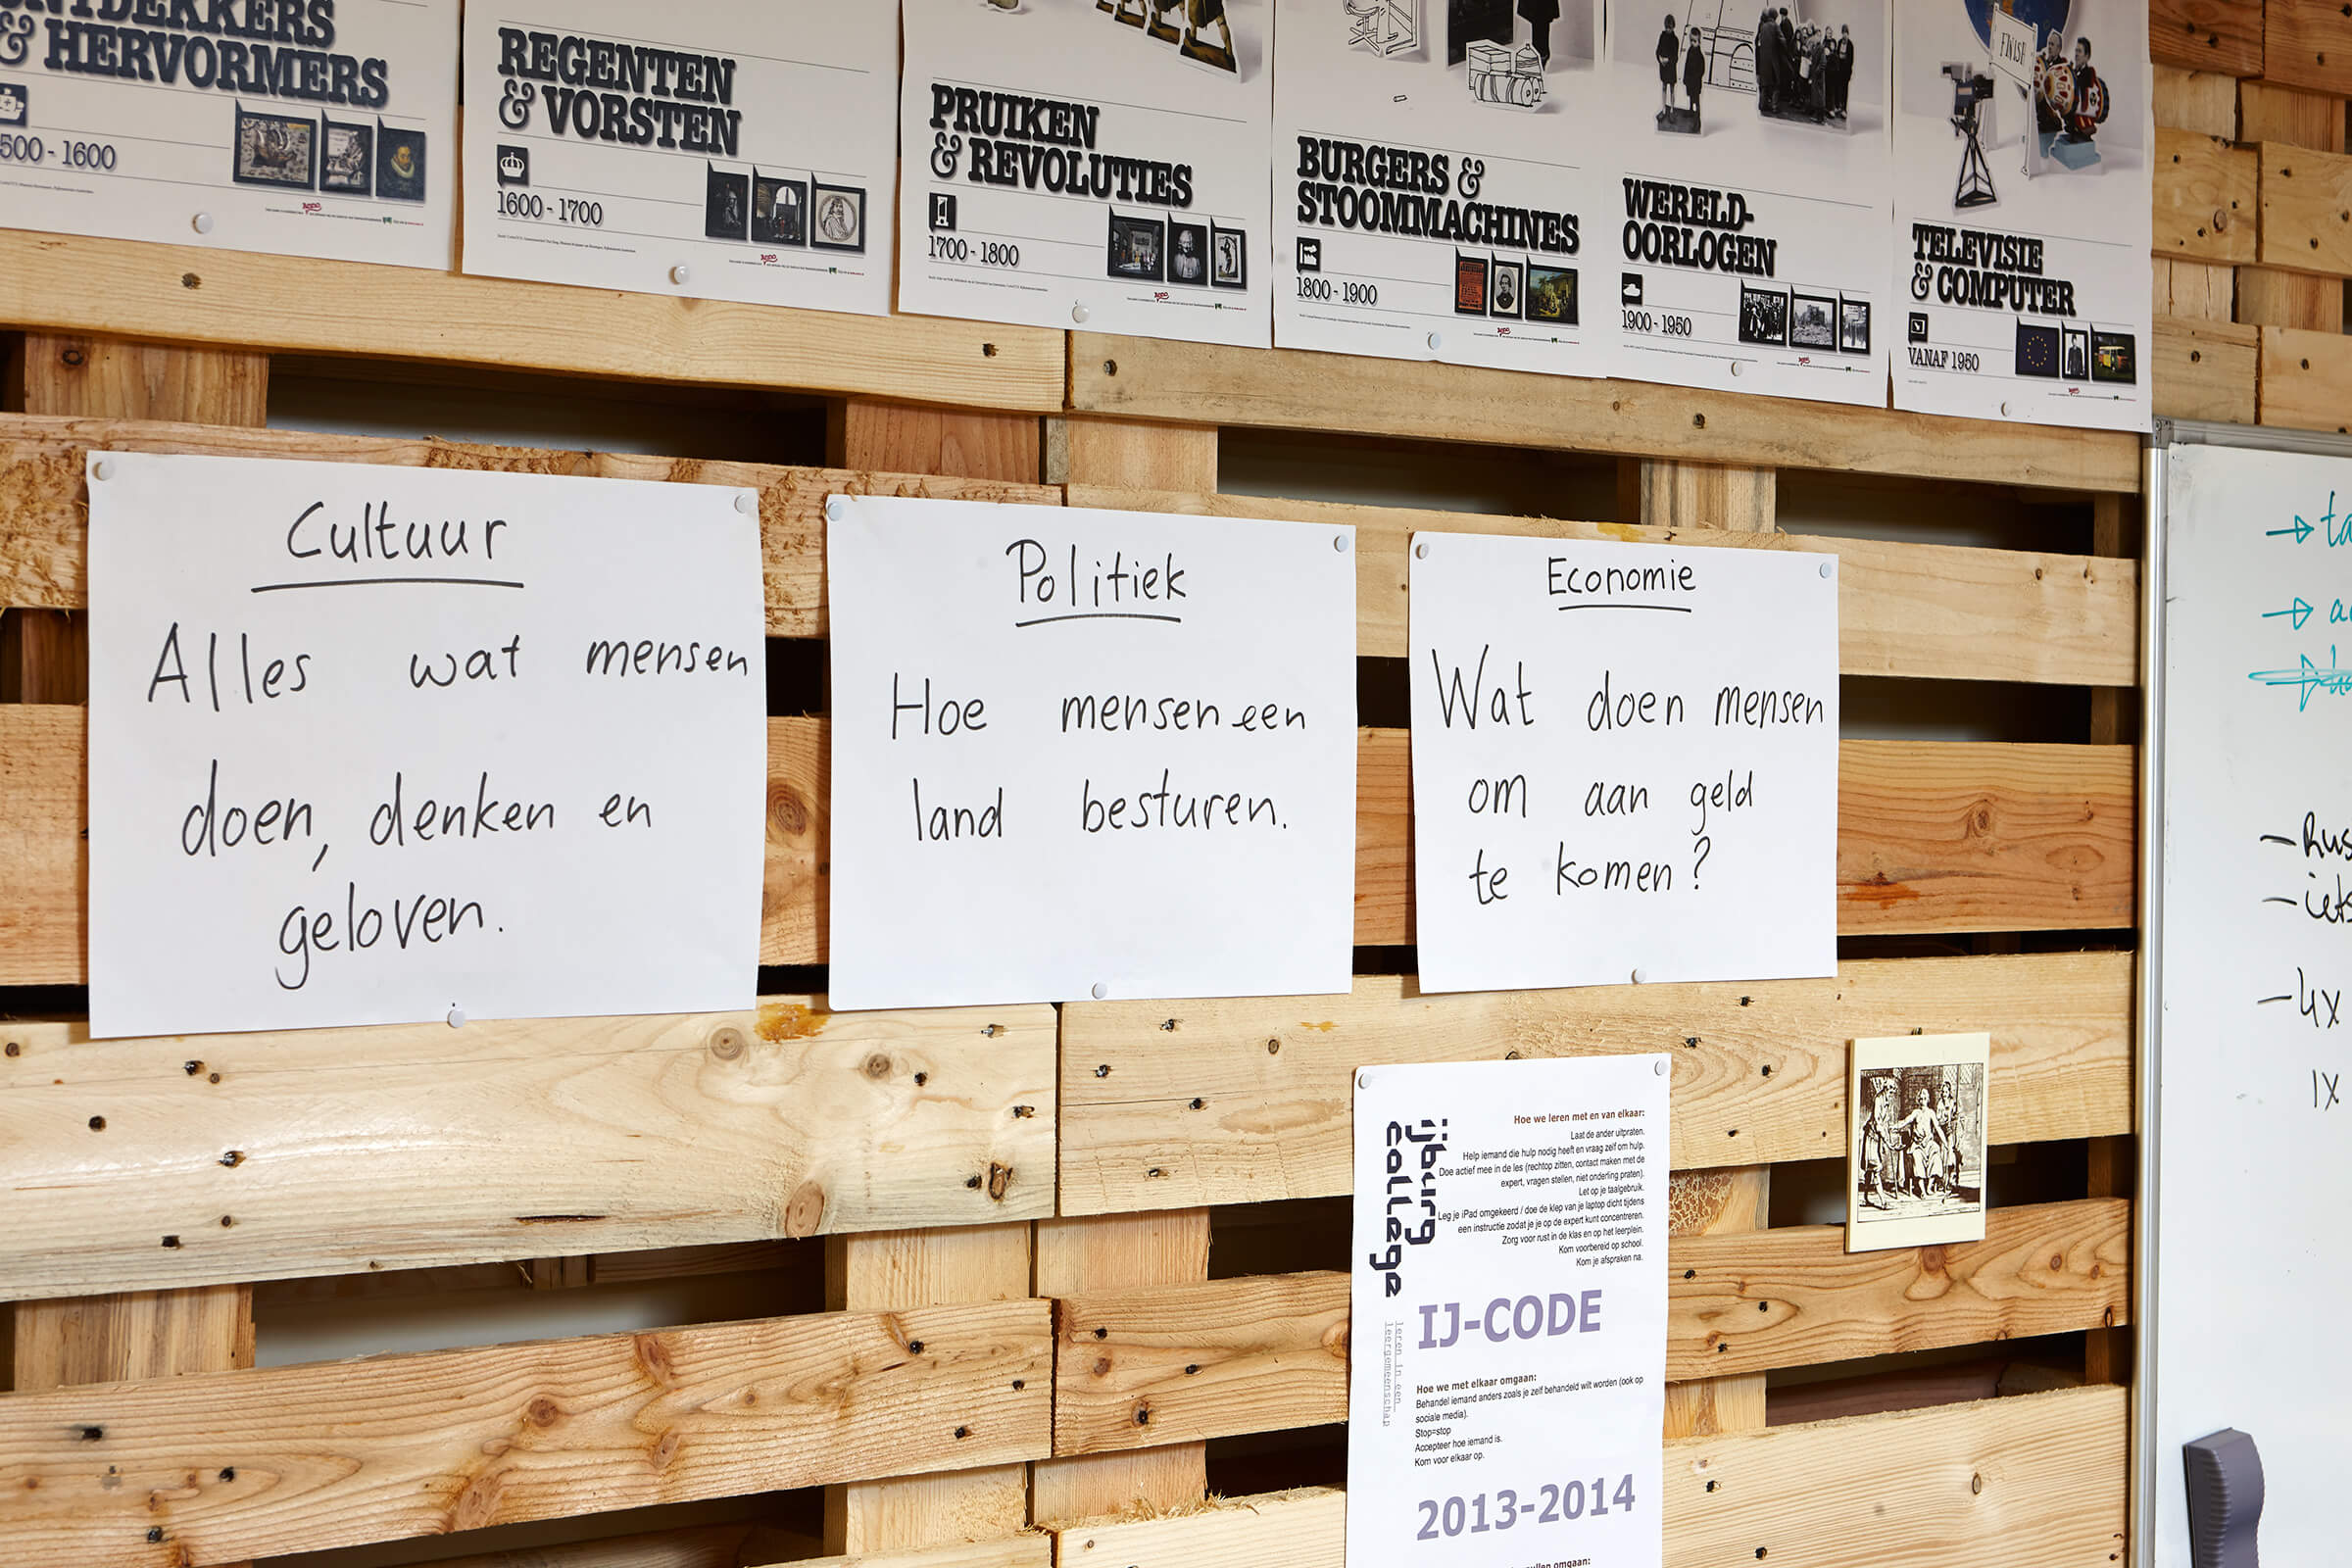 & HERVORMERS
500 - 1600
REGENTEN
& VORSTEN
1600 - 1700
PRUIKEN
& REVOLUTIES
1700 - 1800
BURGERS &
STOOMMACHINES
1800 - 1900
WERELD-
OORLOGEN
1900 - 1950
TELEVISIE
& COMPUTER
VANAF 1950
Cultuur
Alles wat mensen
doen, denken en
geloven.
Politiek
Hoe mensen een
land besturen.
Economie
Wat doen mensen
om aan geld
te komen?
ijburg
college
leren in een
leergemeenschap
Hoe we leren met en van elkaar:
Laat de ander uitpraten.
Help iemand die hulp nodig heeft en vraag zelf om hulp.
Doe actief mee in de les (rechtop zitten, contact maken met de
expert, vragen stellen, niet onderling praten).
Let op je taalgebruik.
Leg je iPad omgekeerd / doe de klep van je laptop dicht tijdens
een instructie zodat je je op de expert kunt concentreren.
Zorg voor rust in de klas en op het leerplein.
Kom voorbereid op school.
Kom je afspraken na.
IJ-CODE
Hoe we met elkaar omgaan:
Behandel iemand anders zoals je zelf behandeld wilt worden (ook op
sociale media).
Stop=stop
Accepteer hoe iemand is.
Kom voor elkaar op.
2013-2014
omgaan:
- 4x
1x